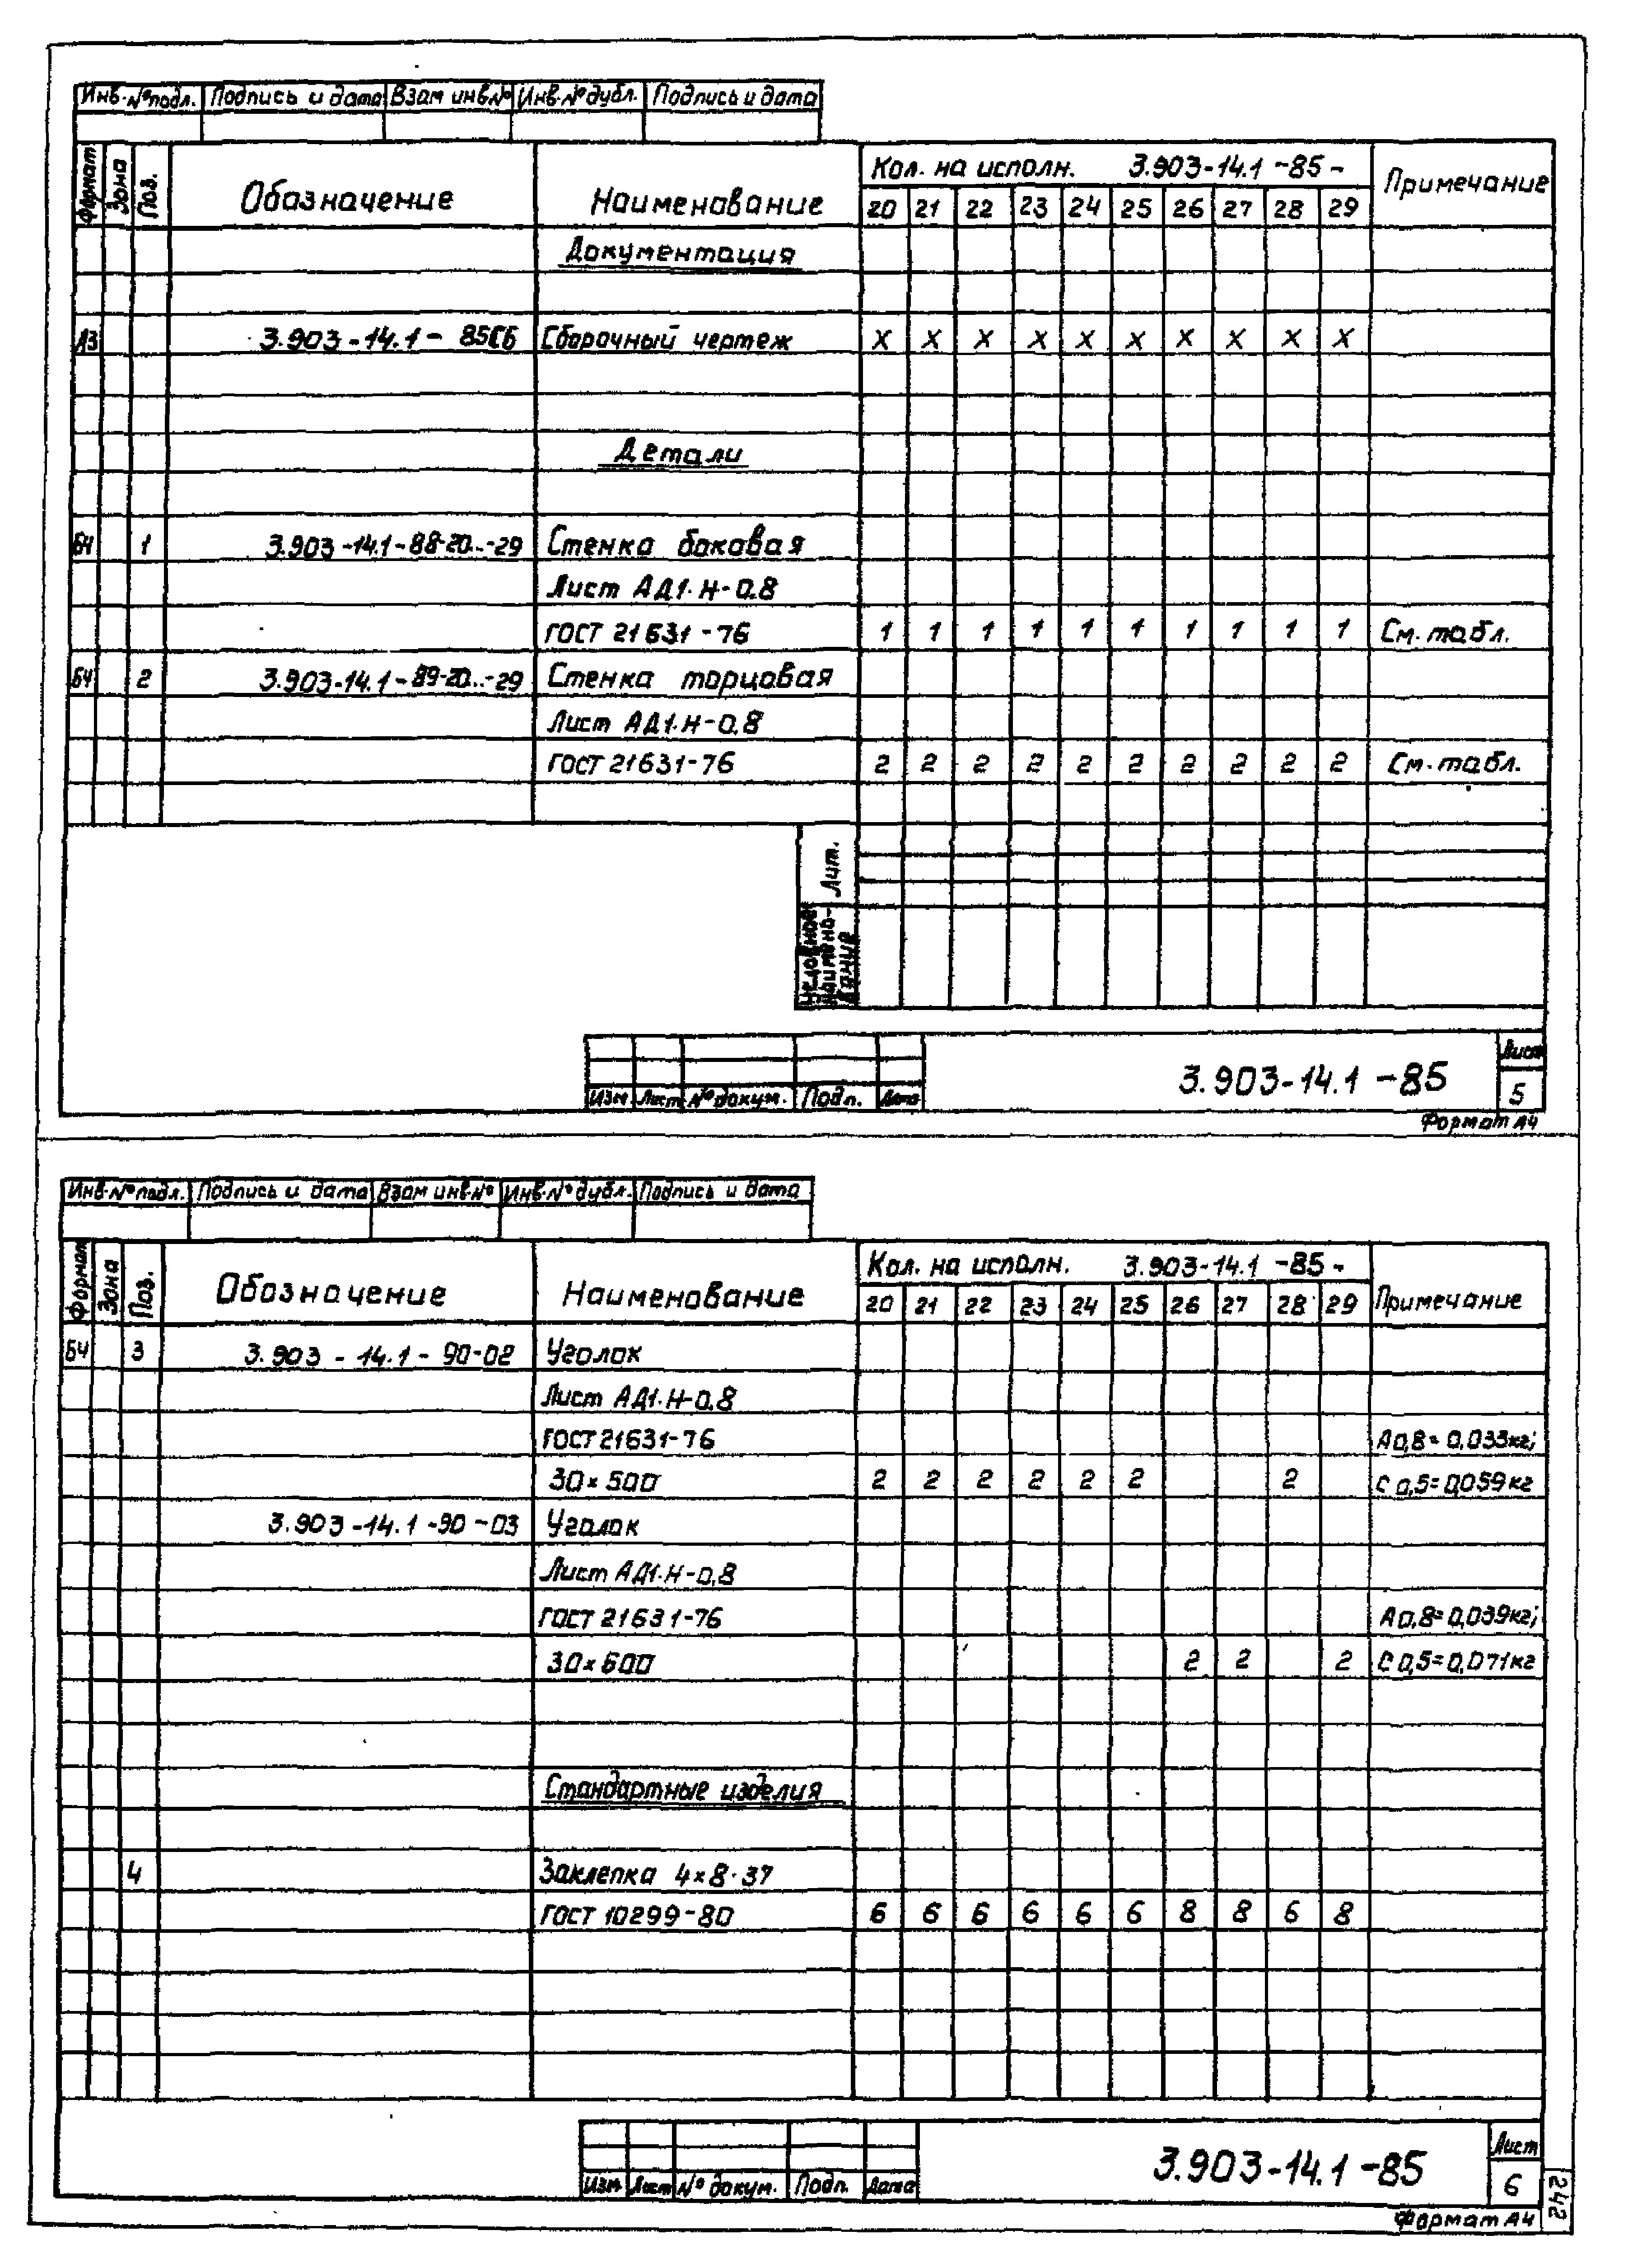 Инв.№подл. Подпись и дата Взам инв№ Инв.№дубл. Подпись и дата
Формат Зона Поз. Обозначение Наименование Кол. на исполн. 3.903-14.1-85- Примечание
20 21 22 23 24 25 26 27 28 29
Документация
А3 3.903-14.1-85СБ Сборочный чертеж X X X X X X X X X X
Детали
БЧ 1 3.903-14.1-88-20...-29 Стенка боковая
Лист АД1.Н-0.8
ГОСТ 21631-76 1 1 1 1 1 1 1 1 1 1 См.табл.
БЧ 2 3.903-14.1-89-20...-29 Стенка торцовая
Лист АД1.Н-0.8
ГОСТ 21631-76 2 2 2 2 2 2 2 2 2 2 См.табл.
Лит.
Условное наимено-вание
3.903-14.1-85 Лист
Изм Лист №докум. Подп. Дата 5
Формат А4
Инв.№подл. Подпись и дата Взам инв.№ Инв.№дубл. Подпись и дата
Формат Зона Поз. Обозначение Наименование Кол. на исполн. 3.903-14.1-85- Примечание
20 21 22 23 24 25 26 27 28 29
БЧ 3 3.903-14.1-90-02 Уголок
Лист АД1.Н-0.8
ГОСТ 21631-76 А0,8=0,033кг;
30×500 2 2 2 2 2 2 2 С0,5=0,059кг
3.903-14.1-90-03 Уголок
Лист АД1.Н-0,8
ГОСТ 21631-76 А0,8=0,039кг;
30×600 2 2 2 С0,5=0,071кг
Стандартные изделия
4 Заклепка 4×8.37
ГОСТ 10299-80 6 6 6 6 6 6 8 8 6 8
3.903-14.1-85 Лист
Изм Лист № докум. Подп. Дата 6
Формат А4
2242